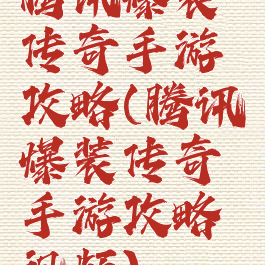 腾讯爆装
传奇手游
攻略(腾讯
爆装传奇
手游攻略
视频)